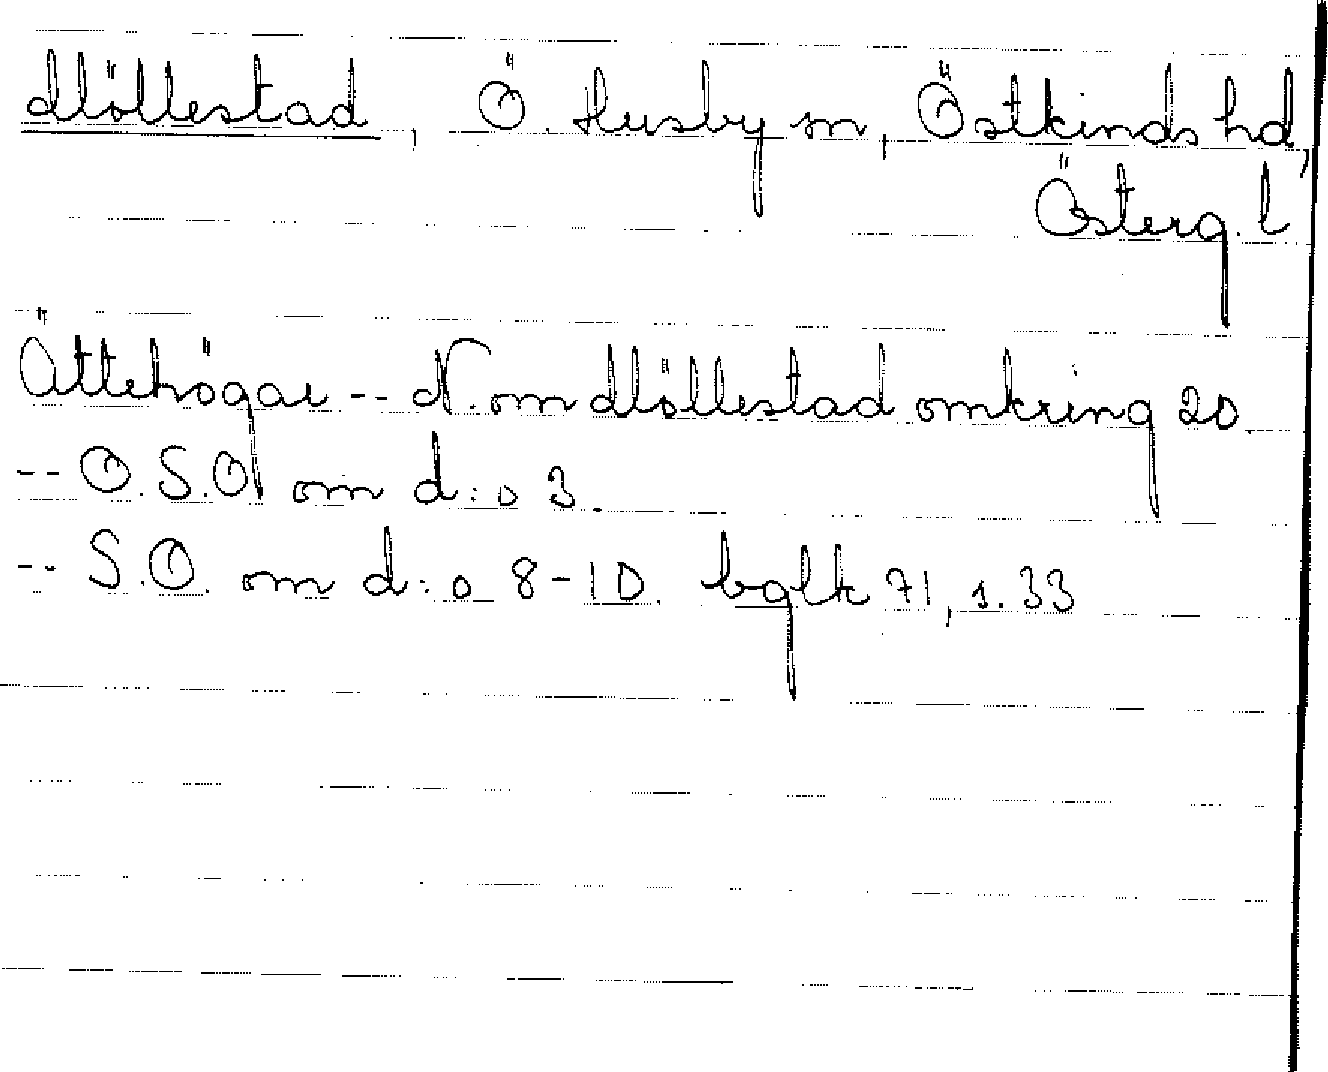 Möllestad, Ö. Husby sn, Östkinds hd,
Österg. l
Ättehögar -- N. om Möllestad omkring 20.
-- O.S.O. om d:o 3.
-- S.O. om d:o 8-10. bglk 71, s. 33